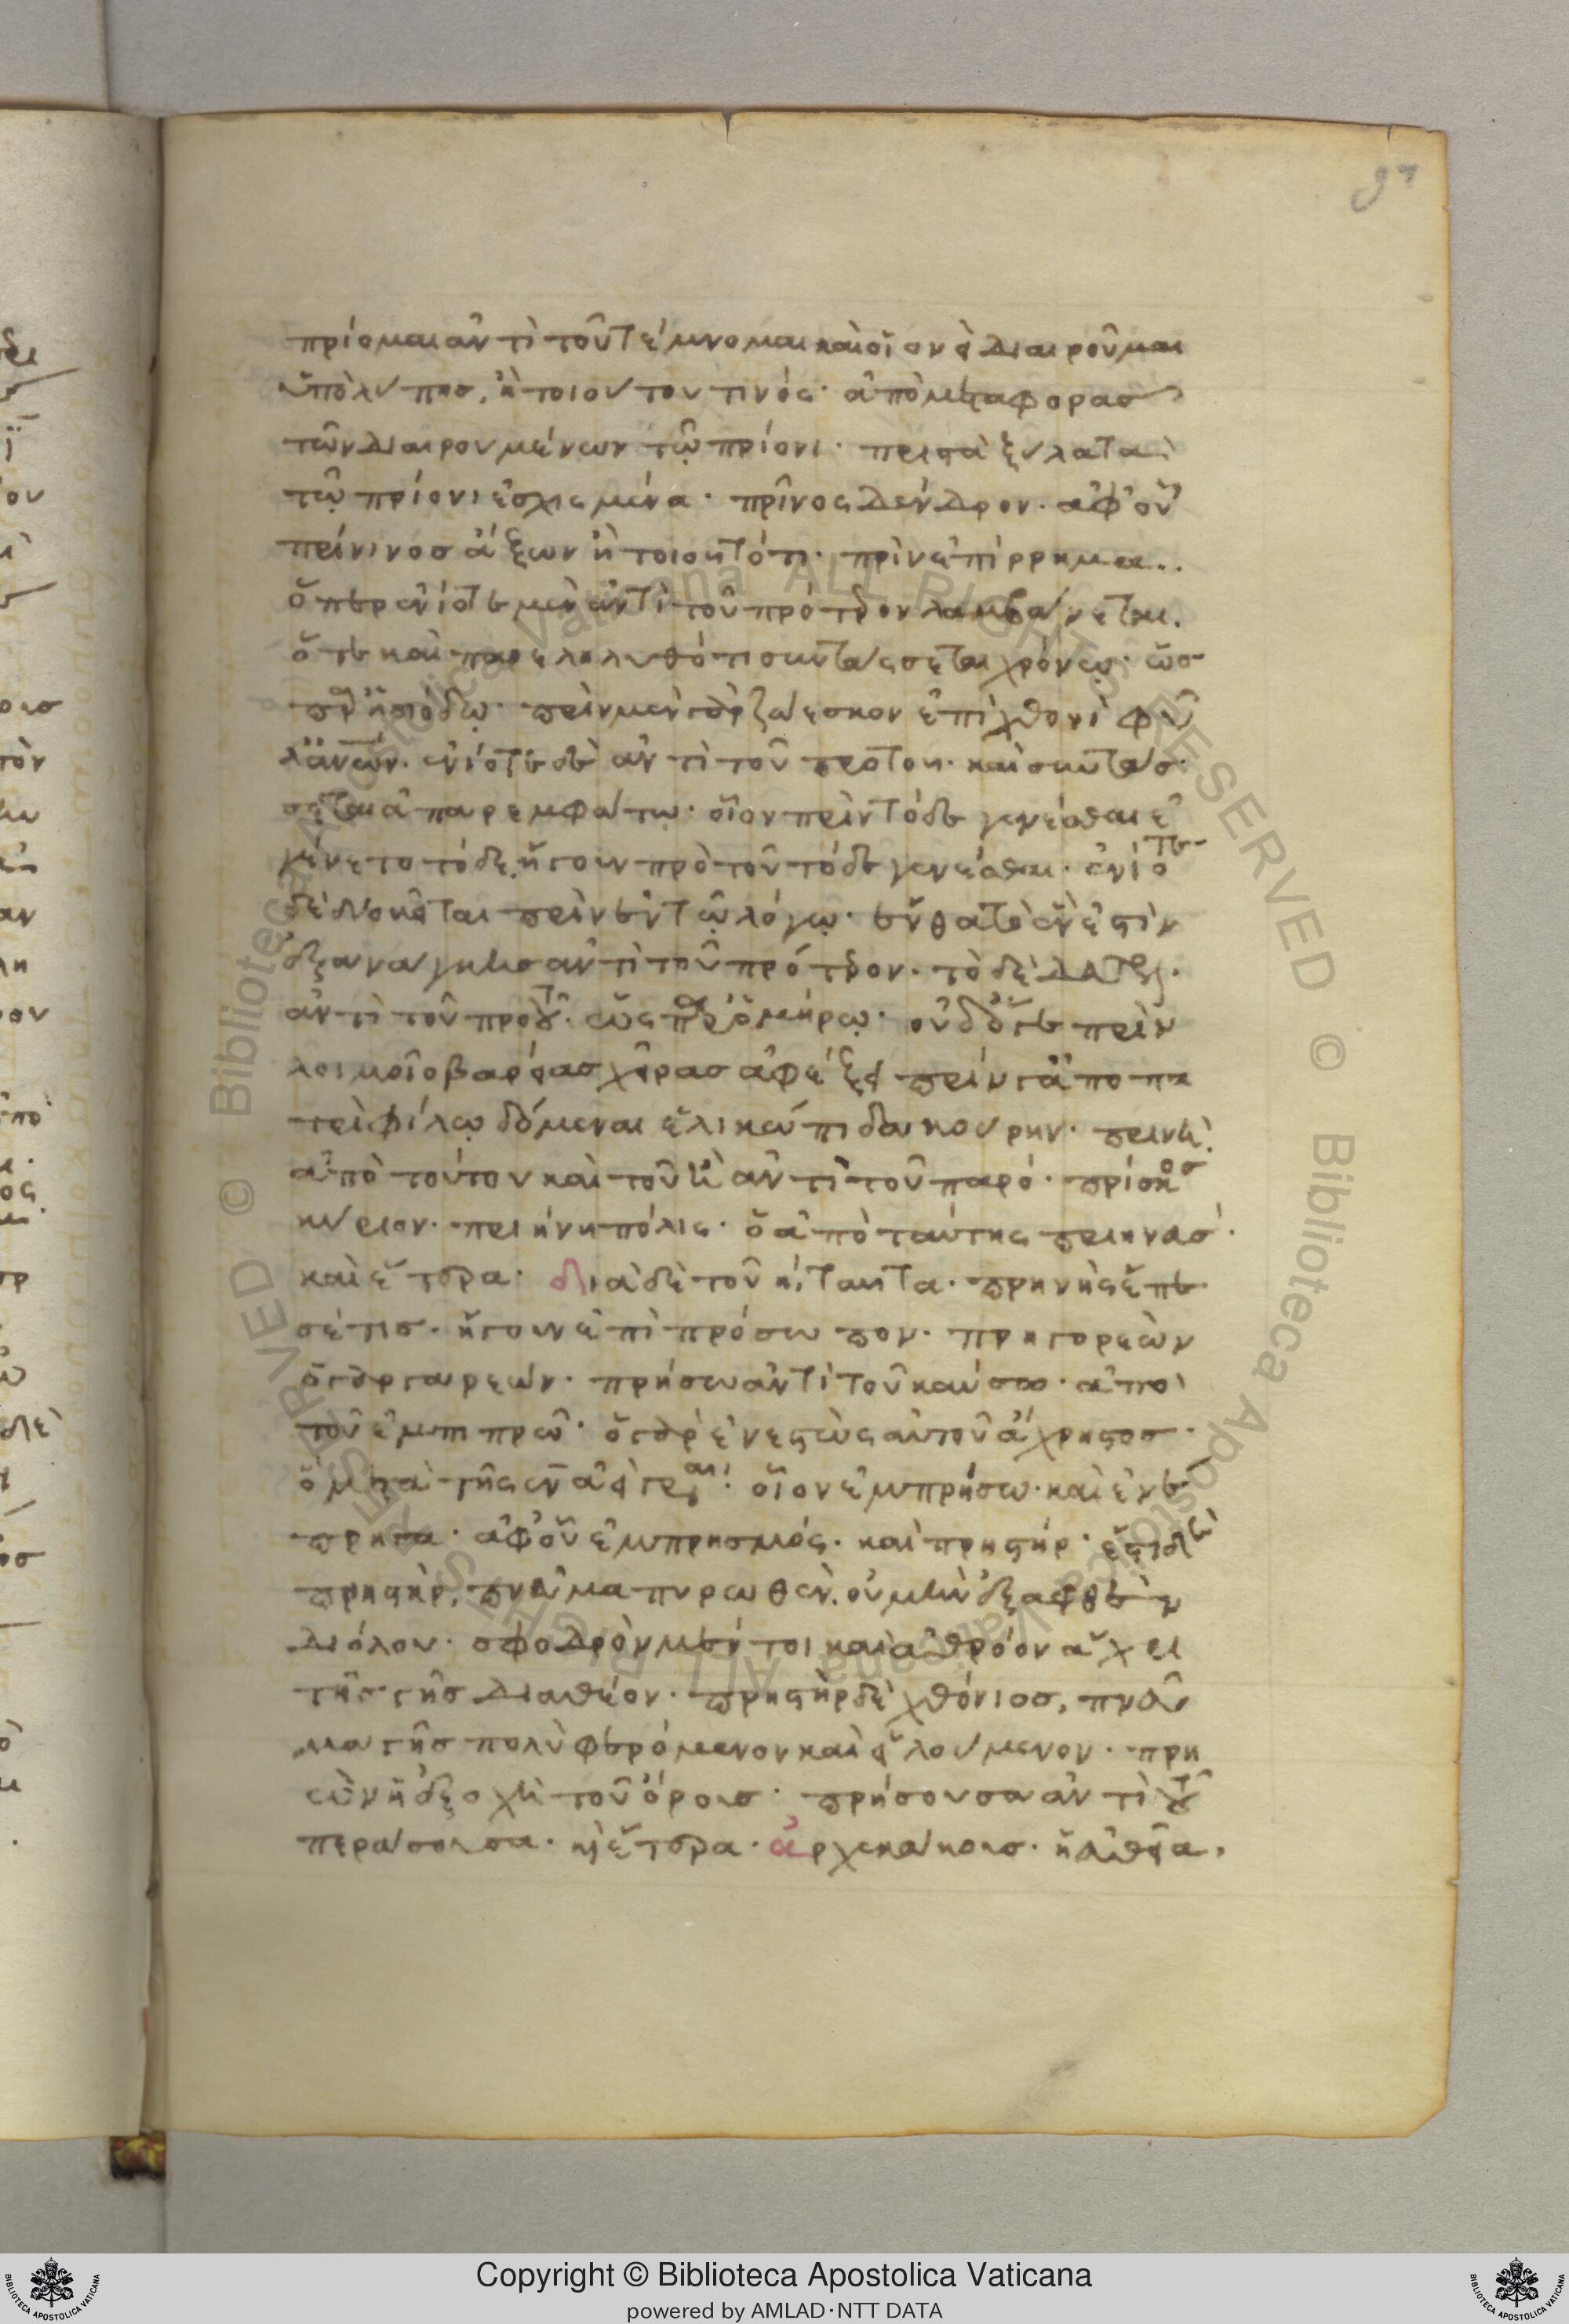 97
πρίομαι ἀντὶ τοῦ τέμνομαι καὶ οἱονεὶ διαιροῦμαι
ὑπὸ λύπης, ἢ τοιούτου τινός· ἀπὸ μεταφορᾶς
τῶν διαιρουμένων τῷ πρίονι· πριστὰ ξύλα τὰ
τῷ πρίονι ἐσχισμένα· πρῖνος δένδρον· ἀφ' οὗ
πρίνινος ἄξων ἢ τοιοῦτό τι· πρὶν ἐπίρρημα..
ὅπερ ἐνίοτε μὲν ἀντὶ τοῦ πρότερον λαμβάνεται.
ὅτε καὶ παρεληλυθότι συντάσσεται χρόνῳ· ὡς
παρ' ἡσιόδῳ· πρὶν μὲν γὰρ ζώεσκον ἐπὶ χθονὶ φῦλ'
ἀνθρώπων· ἐνίοτε δὲ ἀντὶ τοῦ πρὸ τοῦ· καὶ συντάσ
σεται ἀπαρεμφάτῳ· οἷον πρὶν τόδε γενέσθαι ἐ
γένετο τόδε, ἤγουν πρὸ τοῦ τόδε γενέσθαι· ἐνίοτε
δὲ δὶς κεῖται πρὶν ἐν τῷ λόγῳ· ἔνθα τὸ ἓν ἐστὶν
ἐξ ἀνάγκης ἀντὶ τοῦ πρότερον· τὸ δὲ δάτερον
ἀντὶ τοῦ πρὸ τοῦ· ὡς παρ' ὁμήρῳ· οὐδ' ὅγε πρὶν
λοιμοῖο βαρείας χεῖρας ἀφέξει πρίν γ' ἀπὸ πα
τρὶ φίλῳ δόμεναι ἑλικώπιδα κούρην· πρινὴ
ἀπὸ τούτου καὶ τοῦ ἢ ἀντὶ τοῦ παρό· πρίσκος
κύριον· πριήνη πόλις· ὁ ἀπὸ ταύτης πριηνεύς·
καὶ ἕτερα· διὰ δὲ τοῦ η, ταῦτα· πρηνὴς ἔπε
σέ τις· ἤγουν ἐπὶ πρόσωπον· πρηγορεὼν
ὁ γαργαρεών· πρήσω ἀντὶ τοῦ καύσω· ἀπὸ
τοῦ ἐμπιπρῶ· ὅτι γὰρ ἐνεστὼς αὐτοῦ ἄχρηστος·
ὁ μετὰ τῆς ἐν ἀεὶ γράφεται· οἷον ἐμπρήσω· καὶ ἐνέ
πρησα· ἀφ' οὗ ἐμπρησμός· καὶ πρηστήρ· ἔστι δὲ
πρηστήρ, πνεῦμα πυρωθὲν, οὐ μὴν ἐξαφθὲν
διόλου· σφοδρὸν μέντοι καὶ ἀθρόον ἄχρι
τῆς γῆς διαθέον· πρηστὴρ δὲ χθόνιος, πνεῦ
μα γῆς πολὺ φερόμενον καὶ εἱλούμενον· πρη
ὼν ἡ ἐξοχὴ τοῦ ὄρους· πρήσουσα ἀντὶ τοῦ
περάσουσα· καὶ ἕτερα· ἀρχεκάκους· ἢ αἰθρία·
Copyright © Biblioteca Apostolica Vaticana
powered by AMLAD·NTT DATA